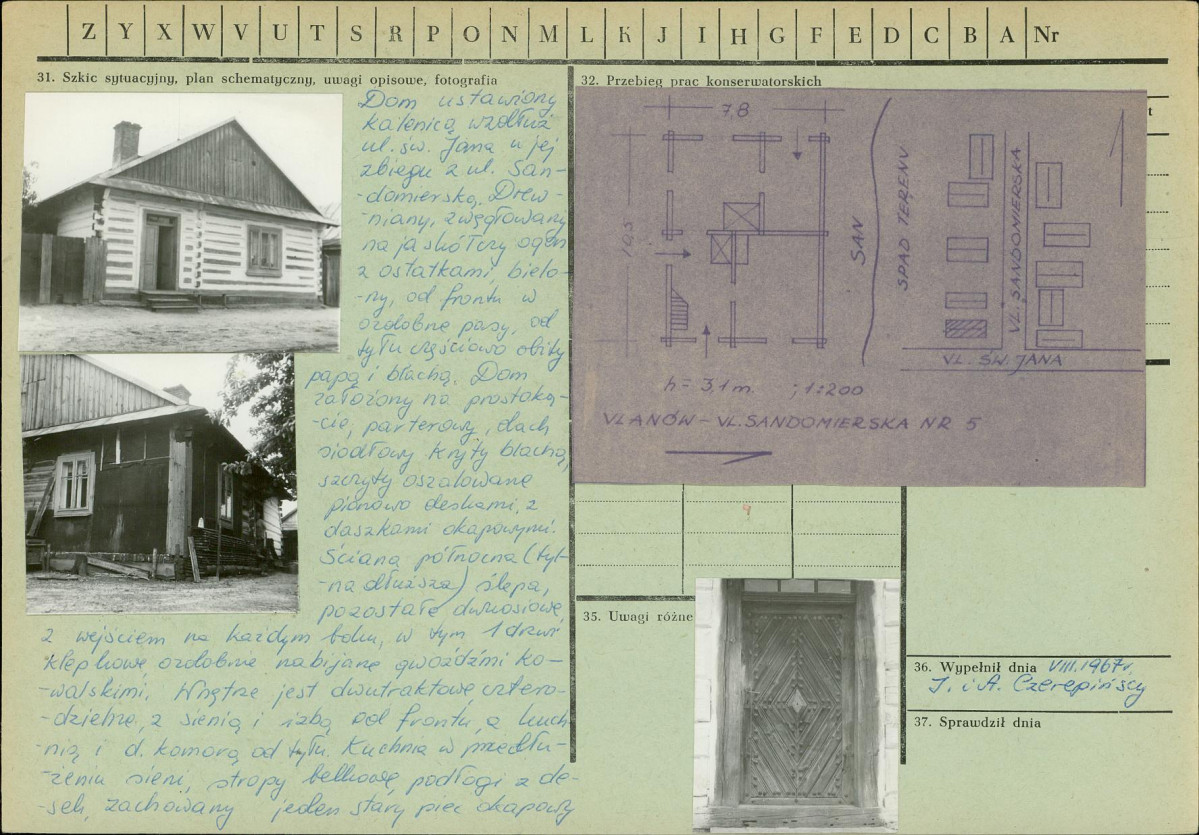 Z Y X W V U T S R P O N M L K J I H G F E D C B A Nr
31. Szkic sytuacyjny, plan schematyczny, uwagi opisowe, fotografia
Dom ustawiony
kalenicą wzdłuż
ul. św. Jana u jej
zbiegu z ul. San-
-domierską. Drew-
niany, zwęgłowany
na jaskółczy ogon
z ostatkami, bielo-
-ny, od frontu w
ozdobne pasy, od
tyłu częściowo obity
papą i blachą. Dom
założony na prostoką-
-cie, parterowy, dach
siodłowy kryty blachą,
szczyty oszalowane
pionowo deskami, z
daszkami okapowymi.
Ściana północna (tyl-
-na dłuższa) ślepa,
pozostałe dwuosiowe,
z wejściem na każdym boku, w tym 1 drzwi
klepkowe ozdobnie nabijane gwoźdźmi ko-
-walskimi. Wnętrze jest dwutraktowe, cztero-
-dzielne, z sienią i izbą od frontu, a kuch
-nią i d. komorą od tyłu. Kuchnia w przedłu-
-żeniu sieni, stropy belkowe, podłogi z de-
-sek, zachowany jeden stary piec okapowy
32. Przebieg prac konserwatorskich
t
7,8
10,5
SAN
SPAD TERENU
UL. SANDOMIERSKA
UL. ŚW. JANA
h = 3,1 m. ; 1:200
ULANÓW – UL. SANDOMIERSKA NR 5
35. Uwagi różne
36. Wypełnił dnia VIII.1967r.
J. i A. Czerepińscy
37. Sprawdził dnia